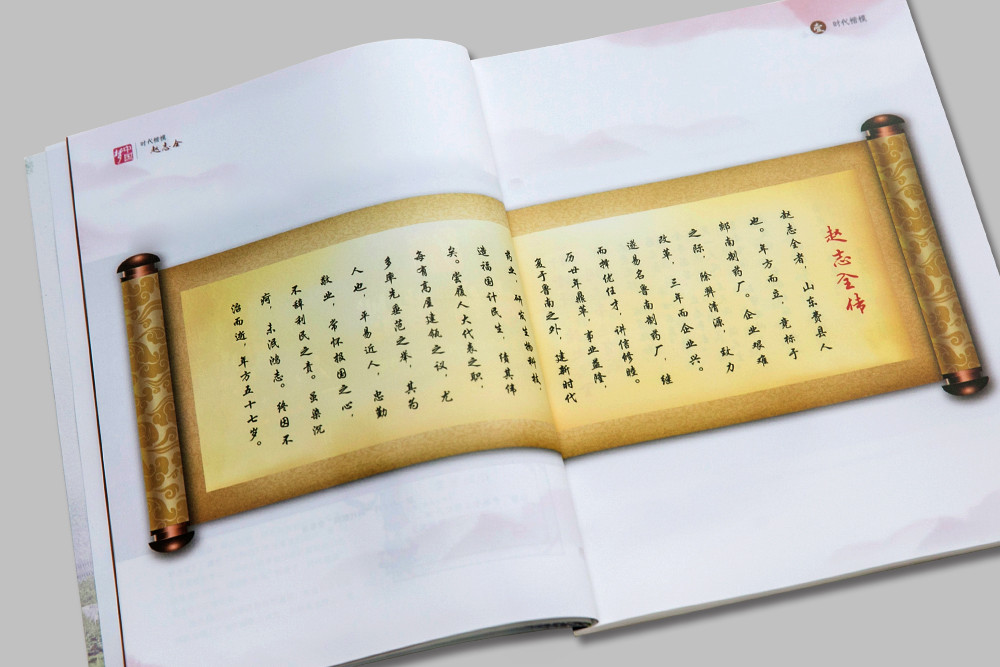 中国梦
时代楷模
赵志全
壹 时代楷模
赵志全传
赵志全者，山东费县人
也。年方而立，竟标于
郯南制药厂。企业艰难
之际，除弊清源，致力
改革，三年而企业兴。
遂易名鲁南制药厂，继
而择优任才，讲信修睦。
历廿年鼎革，事业益隆，
复于鲁南之外，建新时代
药业，研发生物科技
造福国计民生，绩其伟
矣。尝履人大代表之职，
每有高屋建瓴之议，尤
多率先垂范之举，其为
人也，平易近人，忠勤
敬业，常怀报国之心，
不辞利民之责。虽染沉
疴，未泯鸿志。终因不
治而逝，年方五十七岁。